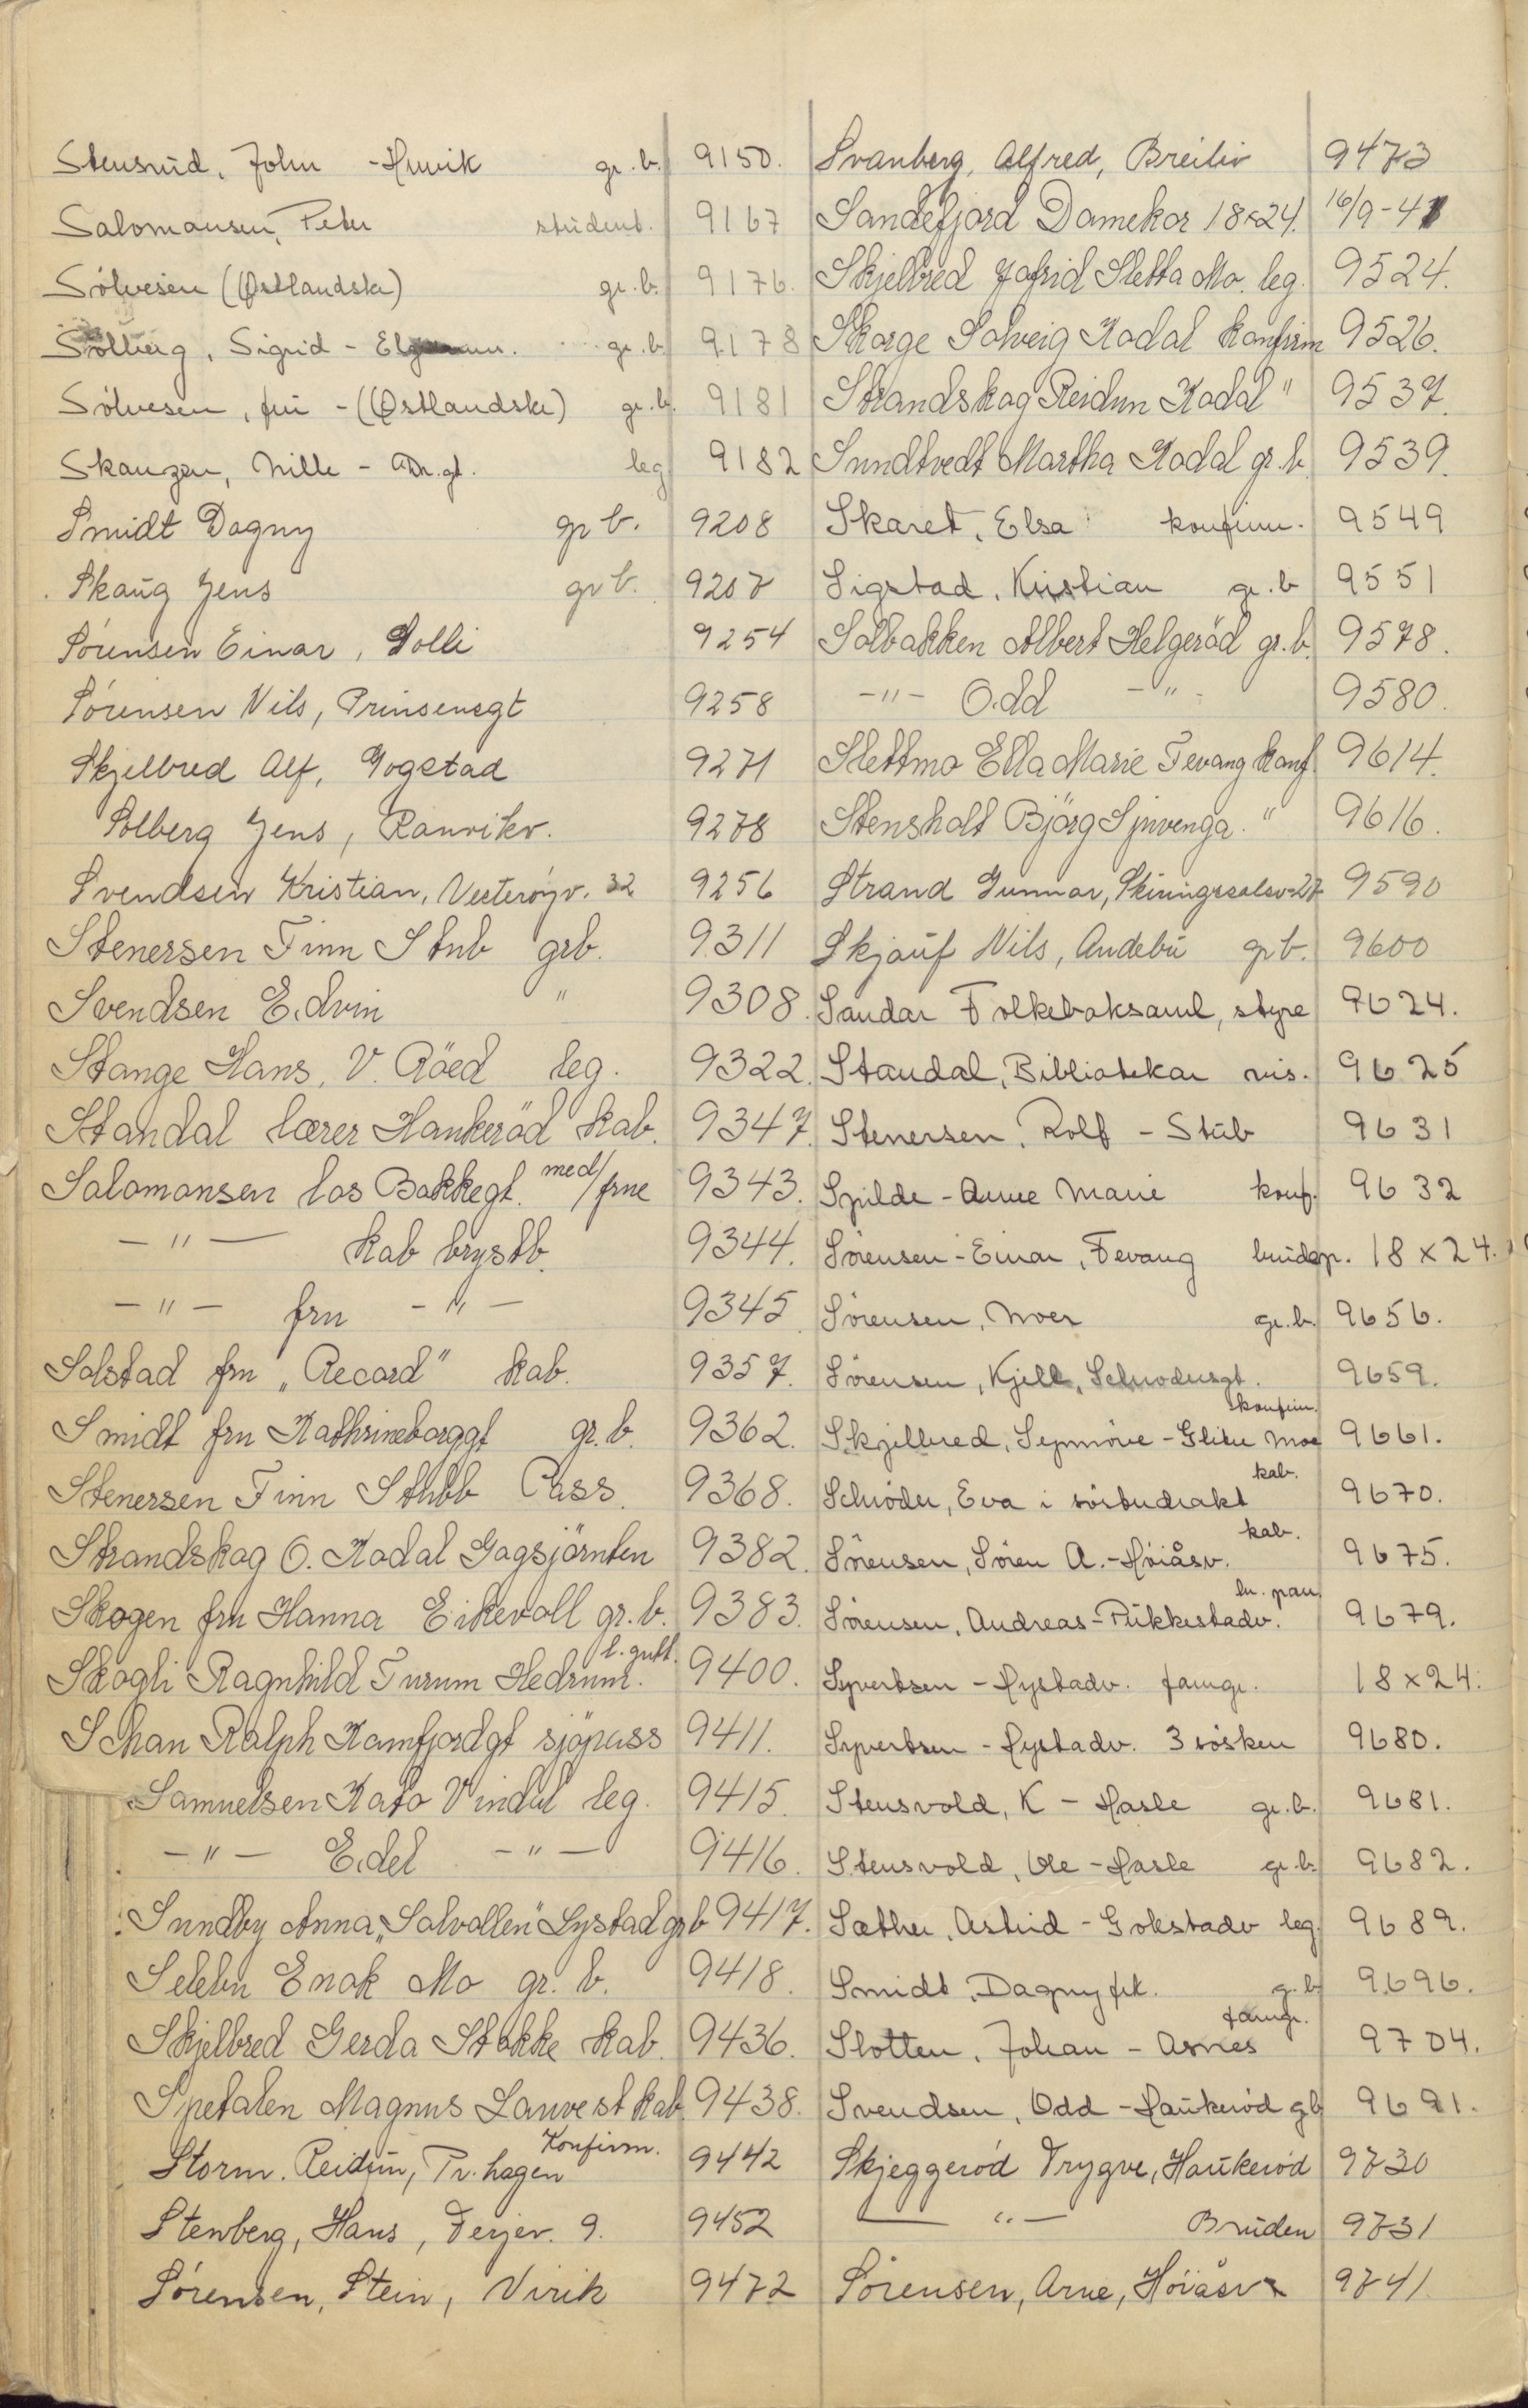 Stensrud, John - Hunvik gr. b. 9150.
Salomansen, Peter student. 9167
Sölvesen (Østlandske) gr. b. 9176.
Solberg, Sigrid - gr. b. 9178
Sölvesen, fru - (Østlandske) gr. b. 9181
Skauzen, Nille - gt. leg 9182
Smidt Dagny gr b. 9208
Skaug Jens gr b. 9207
Sörensen Einar, Solli 9254
Sörensen Nils, Prinsensgt 9258
Skjelbred Alf, Gogstad 9271
Solberg Jens, Ranvikv. 9278
Svendsen Kristian, Vesteröyv. 32 9256
Stenersen Finn Stub grb. 9311
Svendsen Edvin " 9308.
Stange Hans, V. Röed leg. 9322.
Standal lærer Haukeröd kab. 9347.
Salomonsen los Bakkegt. med/frue 9343.
-"- kab brystb. 9344.
-"- fru -"- 9345
Solstad fru „Record" kab. 9357.
Smidt fru Kathrineborggt gr. b. 9362.
Stenersen Finn Stubb Pass. 9368.
Strandskog O. Kodal Gogsjörnten 9382.
Skogen fru Hanna Eikevoll gr. b. 9383.
Skogli Ragnhild Furum Hedrum. b. gutt. 9400.
Schan Ralph Kamfjordgt sjöpass 9411.
Samuelsen Kato Vindal leg. 9415.
-"- Edel -"- 9416.
Sundby Anna, „Solvollen" Lystad grb 9417.
Selebu Enok Mo gr. b. 9418.
Skjelbred Gerda Stokke kab. 9436.
Spetalen Magnus Lauvest kab. 9438.
Storm. Reidun, Pr. hagen Konfirm. 9442
Stenberg, Hans, Ferjev. 9. 9452
Sörensen, Stein, Virik 9472
Svanberg, Alfred, Breiliv 9473
Sandefjord Damekor 18×24. 16/9-41
Skjelbred Jofrid Sletta Mo. leg. 9524.
Skorge Solveig Kodal konfirm 9526.
Strandskog Reidun Kodal " 9537.
Sundtvedt Martha Kodal gr. b. 9539.
Skaret, Elsa konfirm. 9549
Sigstad, Kristian gr. b 9551
Solbakken Albert Helgeröd gr. b. 9578.
-"- Odd -"- 9580.
Slettmo Ella Marie Fevang konf. 9614.
Stensholt Björg Sjuvenga. " 9616.
Strand Gunnar, Skiringssalsv 27 9590
Skjauf Nils, Andebu gr b. 9600
Sandar Folkeboksaml, styre 9624.
Standal, Bibliotekar vis. 9625
Stenersen, Rolf - Stub 9631
Spilde - Anne Marie konf. 9632
Sörensen - Einar, Fevang brudep. 18 x 24.
Sörensen, Moer gr. b. 9656.
Sörensen, Kjell, Schrödersgt. 9659.
Skjelbred, Synnöve - Glitre Moe konfirm. 9661.
Schröder, Eva i rösterdrakt kab. 9670.
Sörensen, Sören A. - Höiåsv. kab. 9675.
Sörensen, Andreas - Pukkestadv. br. par 9679.
Syvertsen - Nystadv. famgr. 18 x 24.
Syvertsen - Nystadv. 3 sösken 9680.
Stensvold, K - Hasle gr. b. 9681.
Stensvold, Ole - Hasle gr. b. 9682.
Sæther, Astrid - Gokstadv leg. 9689.
Smidt, Dagny frk. g. b. 9696.
Slotten, Johan - Asnes famgr. 9704.
Svendsen, Odd - Haukeröd gb 9691.
Skjeggeröd Trygve, Haukeröd 9730
-"- Bruden 9731
Sörensen, Arne, Höiåsv 9741